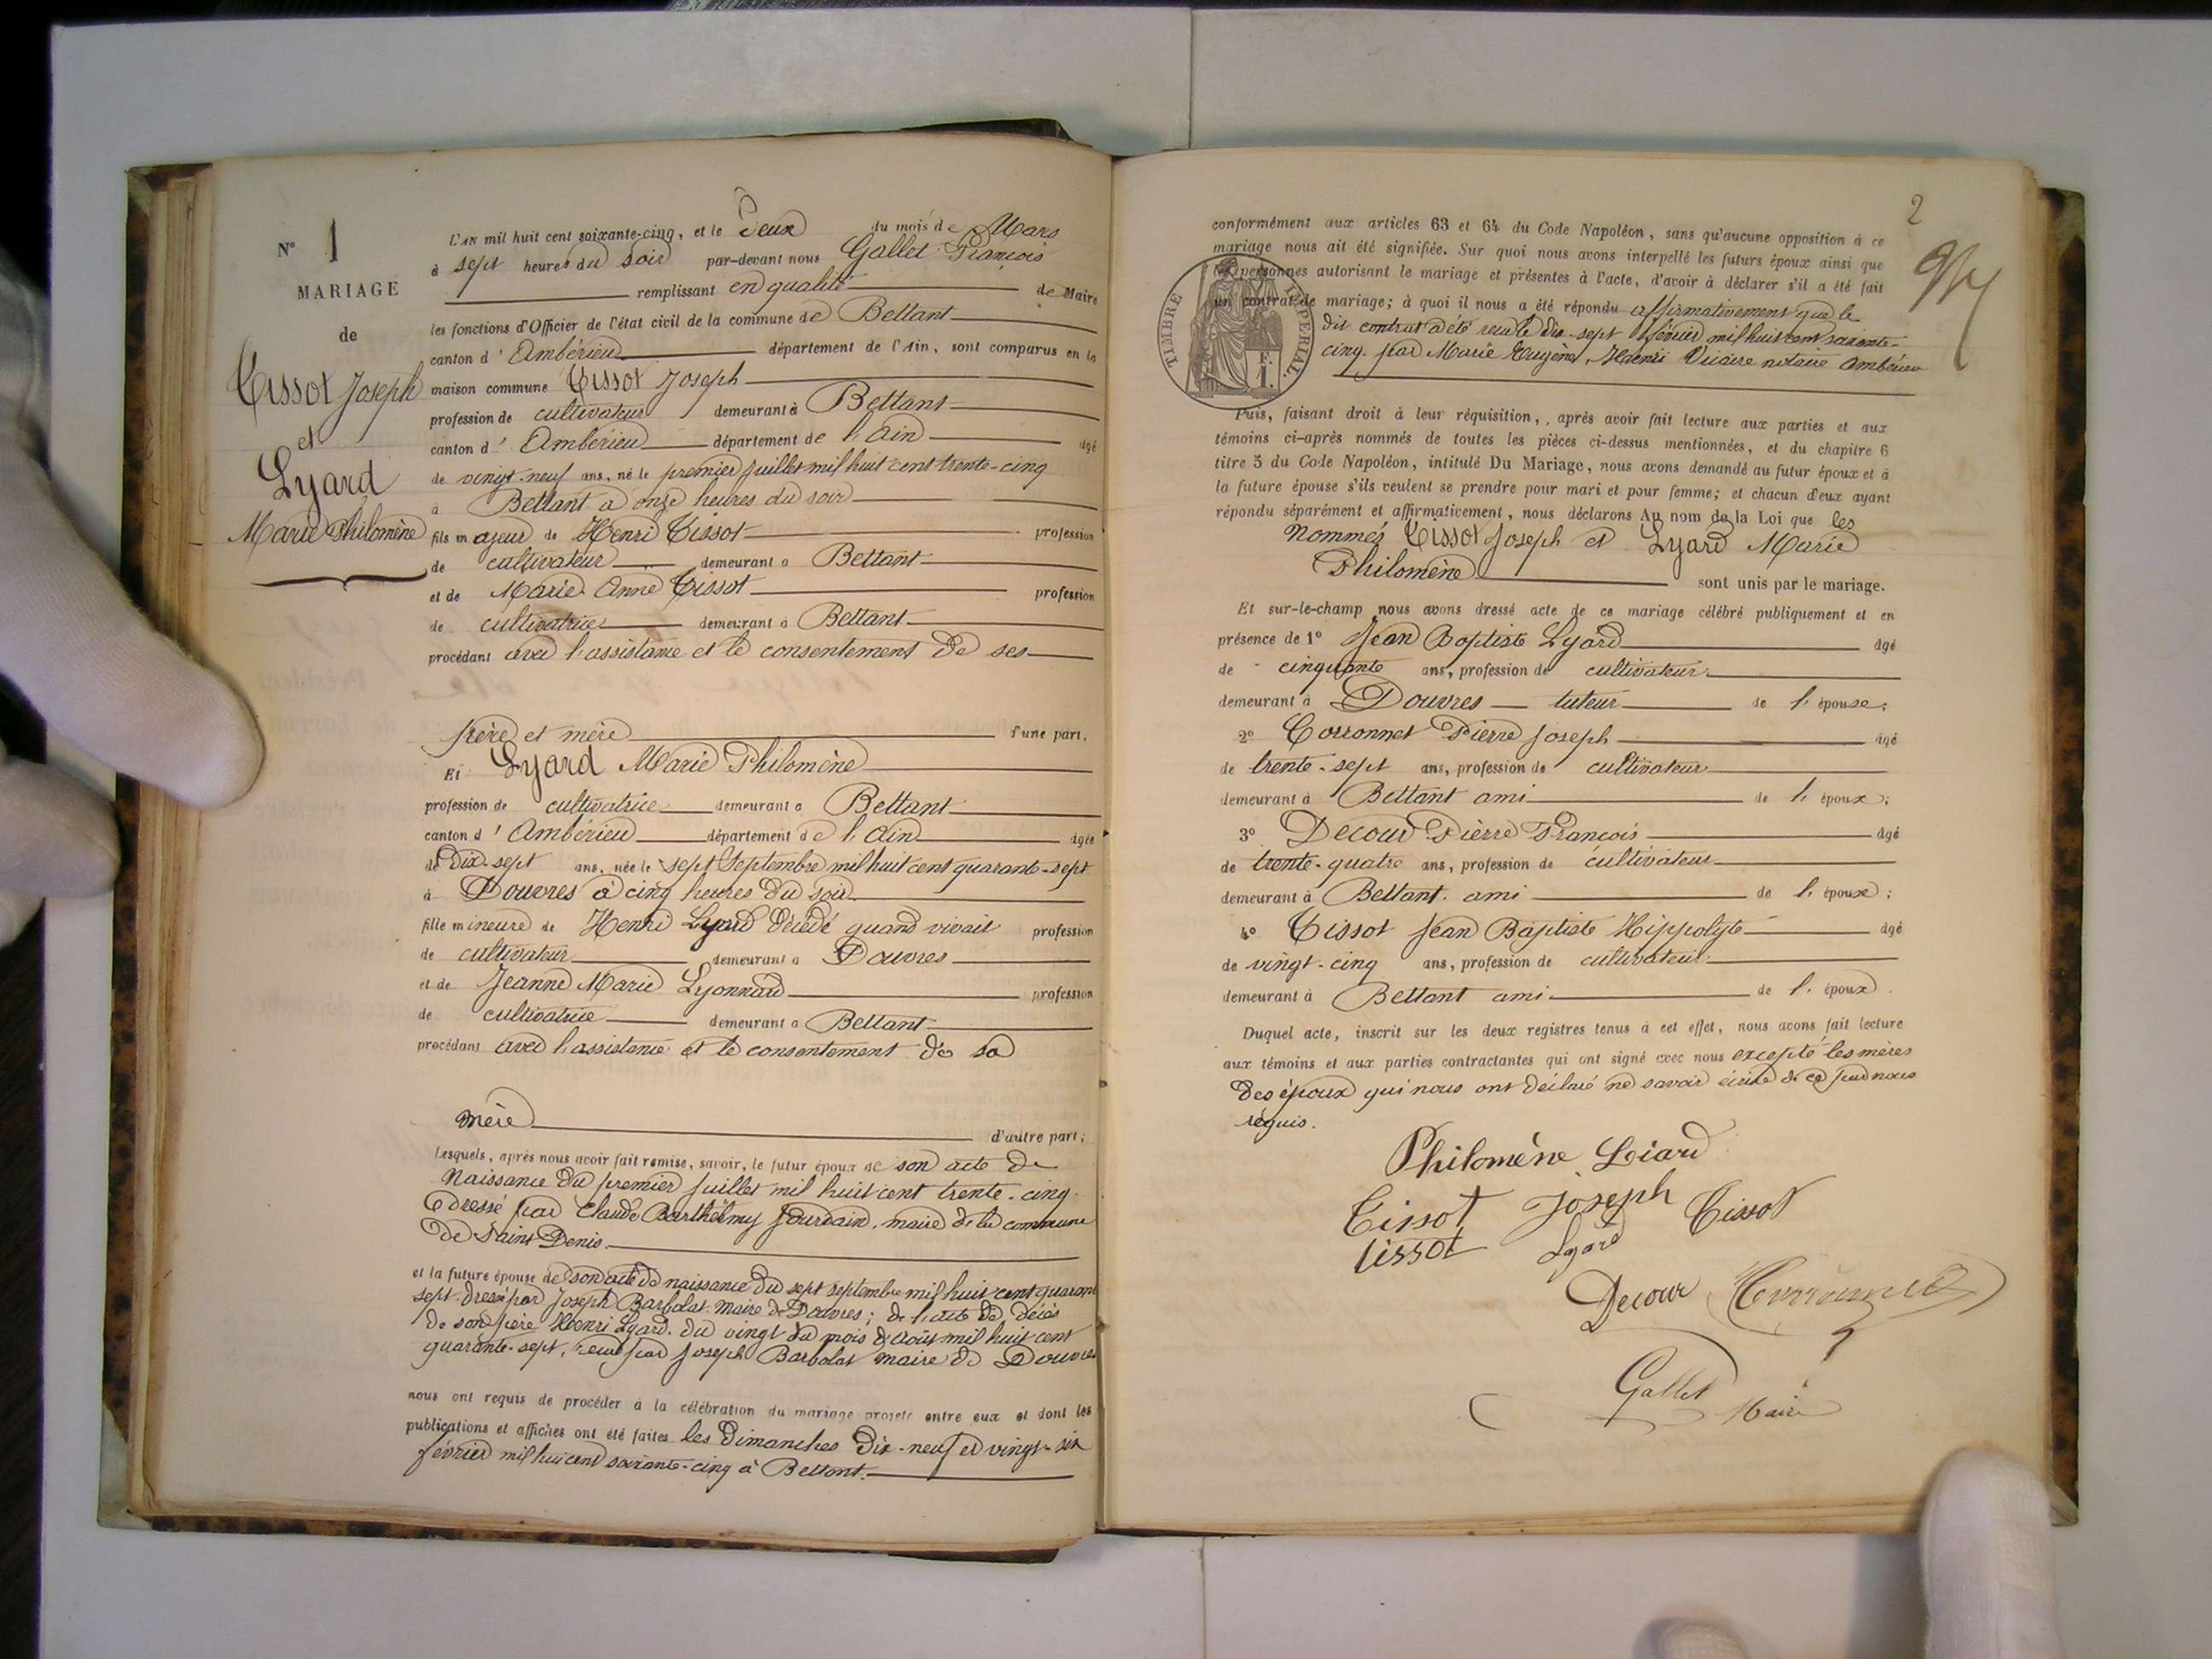 N° 1
MARIAGE
de
Tissot Joseph
et
Lyard
Marie Philomène
L'AN mil huit cent soixante-cinq, et le Deux du mois de Mars
à sept heures du soir par-devant nous Gallet François
remplissant en qualité de Maire
les fonctions d'Officier de l'état civil de la commune de Bettant
canton d' Ambérieu département de l'Ain, sont comparus en la
maison commune Tissot Joseph
profession de cultivateur demeurant à Bettant
canton d' Ambérieu département de l'Ain âgé
de vingt-neuf ans, né le premier juillet mil huit cent trente-cinq
à Bettant à onze heures du soir
fils majeur de Henri Tissot profession
de cultivateur demeurant à Bettant
et de Marie Anne Tissot profession
de cultivatrice demeurant à Bettant
procédant avec l'assistance et le consentement de ses
père et mère d'une part.
Et Lyard Marie Philomène
profession de cultivatrice demeurant à Bettant
canton d' Ambérieu département de l'Ain âgée
de Dix-sept ans, née le sept Septembre mil huit cent quarante-sept
à Douvres à cinq heures du soir
fille mineure de Henri Lyard décédé quand vivait profession
de cultivateur demeurant à Douvres
et de Jeanne Marie Lyonnard profession
de cultivatrice demeurant à Bettant
procédant avec l'assistance et le consentement de sa
mère d'autre part;
Lesquels, après nous avoir fait remise, savoir, le futur époux de son acte de
Naissance du premier juillet mil huit cent trente-cinq
Dressé par Claude Barthélmy Jourdain, maire de la commune
de Saint Denis.
et la future épouse de son acte de naissance du sept septembre mil huit cent quarant
sept dressé par Joseph Barbolat maire de Douvres; de l'acte de décès
de son père Henri Lyard du vingt du mois d'août mil huit cent
quarante-sept, reçu par Joseph Barbolat maire de Douvres
nous ont requis de procéder à la célébration du mariage projeté entre eux et dont les
publications et affiches ont été faites les Dimanches Dix-neuf et vingt-six
février mil huit cent soixante-cinq à Bettant.
2
conformément aux articles 63 et 64 du Code Napoléon, sans qu'aucune opposition à ce
mariage nous ait été signifiée. Sur quoi nous avons interpellé les futurs époux ainsi que
les personnes autorisant le mariage et présentes à l'acte, d'avoir à déclarer s'il a été fait
un contrat de mariage; à quoi il nous a été répondu affirmativement que le
dit contrat a été reçu le dix-sept février mil huit cent soixante-
cinq par Marie Eugène, Henri Vicaire notaire Ambérieu
TIMBRE IMPÉRIAL.
Puis, faisant droit à leur réquisition, après avoir fait lecture aux parties et aux
témoins ci-après nommés de toutes les pièces ci-dessus mentionnées, et du chapitre 6
titre 5 du Code Napoléon, intitulé Du Mariage, nous avons demandé au futur époux et à
la future épouse s'ils veulent se prendre pour mari et pour femme; et chacun d'eux ayant
répondu séparément et affirmativement, nous déclarons Au nom de la Loi que les
Nommés Tissot Joseph et Lyard Marie
Philomène sont unis par le mariage.
Et sur-le-champ nous avons dressé acte de ce mariage célébré publiquement et en
présence de 1° Jean Baptiste Lyard âgé
de cinquante ans, profession de cultivateur
demeurant à Douvres tuteur de l'épouse;
2° Corronnet Pierre Joseph âgé
de trente-sept ans, profession de cultivateur
demeurant à Bettant ami de l'époux;
3° Decour Pierre François âgé
de trente-quatre ans, profession de cultivateur
demeurant à Bettant. ami de l'époux;
4° Tissot Jean Baptiste Hippolyte âgé
de vingt-cinq ans, profession de cultivateur.
demeurant à Bettant ami de l'époux.
Duquel acte, inscrit sur les deux registres tenus à cet effet, nous avons fait lecture
aux témoins et aux parties contractantes qui ont signé avec nous excepté les mères
des époux qui nous ont déclaré ne savoir écrire de ce par nous
réquis.
Philomène Liard
Tissot Joseph Tissot
Tissot Lyard
Decour
Gallet Maire